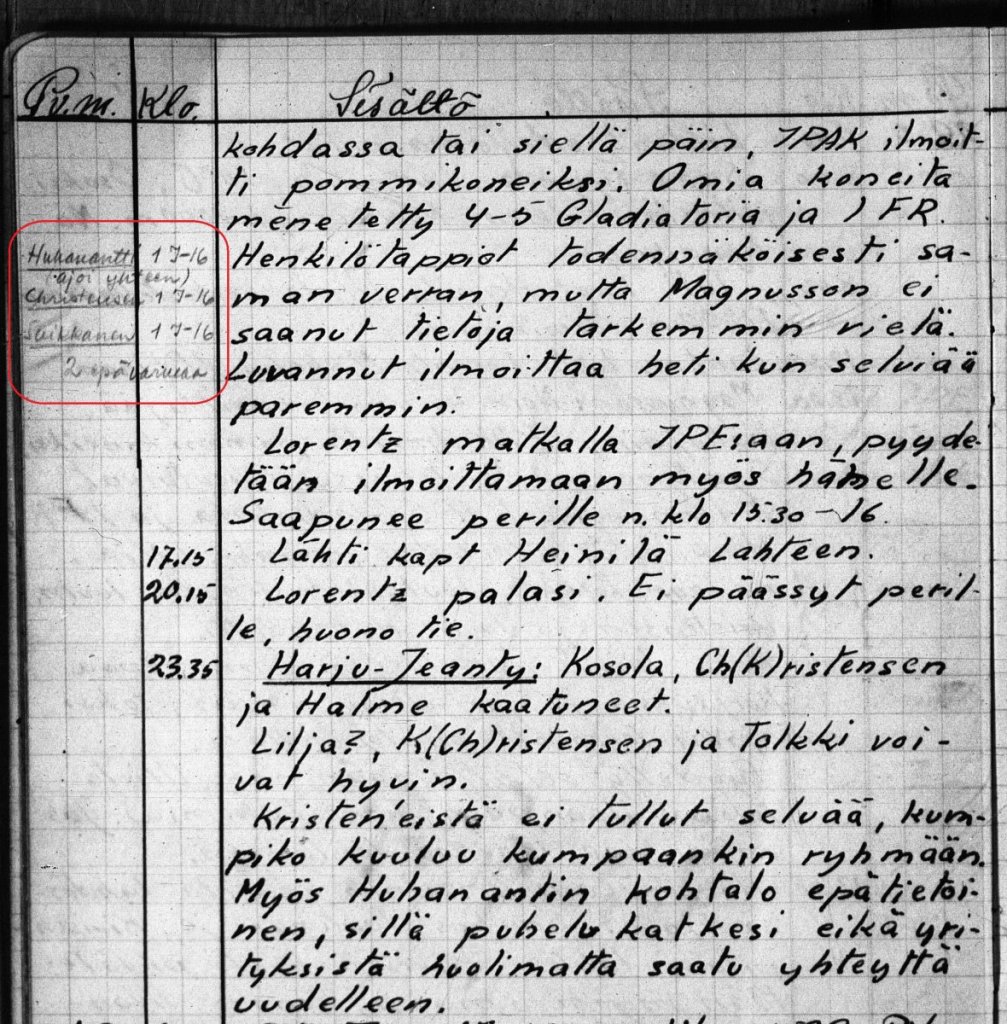 Pv.m. Klo. Sisältö
kohdassa tai siellä päin, JPAK ilmoit-
ti pommikoneiksi. Omia koneita
menetetty 4-5 Gladiatoria ja 1 FR.
Huhanantti 1 I-16
(ajoi yhteen)
Christensen 1 I-16
Saikkanen 1 I-16
2 epävarmaa
Henkilötappiot todennäköisesti sa-
man verran, mutta Magnusson ei
saanut tietoja tarkemmin vielä.
Luvannut ilmoittaa heti kun selviää
paremmin.
Lorentz matkalla JPE:aan, pyyde-
tään ilmoittamaan myös hänelle.
Saapunee perille n. klo 15.30-16.
17.15 Lähti kapt Heinilä Lahteen.
20.15 Lorentz palasi. Ei päässyt peril-
le, huono tie.
23.35 Harju-Jeanty: Kosola, Ch(K)ristensen
ja Halme kaatuneet.
Lilja?, K(Ch)ristensen ja Tolkki voi-
vat hyvin.
Kristen'eistä ei tullut selvää, kum-
piko kuuluu kumpaankin ryhmään.
Myös Huhanantin kohtalo epätietoi-
nen, sillä puhelu katkesi eikä yri-
tyksistä huolimatta saatu yhteyttä
uudelleen.